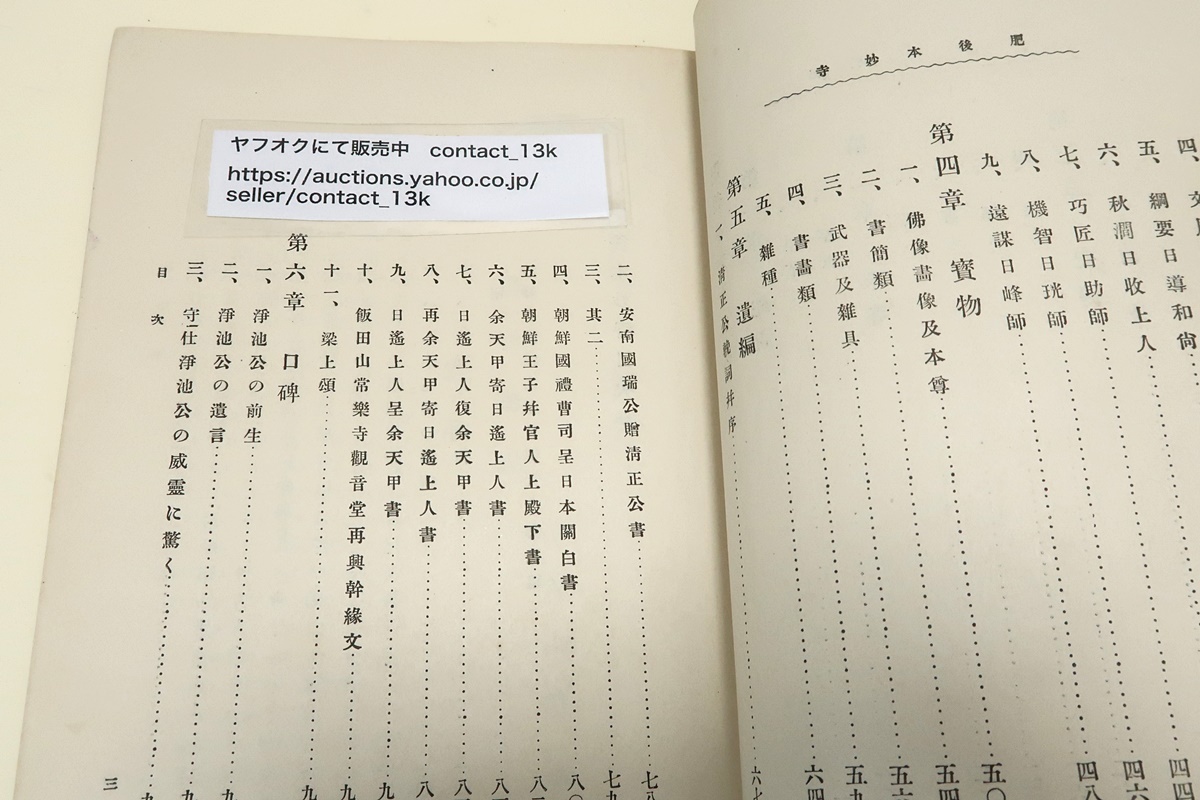 肥後本妙寺
五、綱要日導和尙
六、秋澗日收上人
七、巧匠日助師……四八
八、機智日珖師
九、遠謀日峰師……五〇
第四章 寶物
一、佛像畫像及本尊……五四
二、書簡類……五六
三、武器及雜具……五九
四、書畫類……六四
五、雜種……六七
第五章 遺編
一、淸正公輓詞幷序
ヤフオクにて販売中 contact_13k
https://auctions.yahoo.co.jp/
seller/contact_13k
二、安南國瑞公贈淸正公書……七八
三、其二……七九
四、朝鮮國禮曹司呈日本關白書……八〇
五、朝鮮王子幷官人上殿下書
六、余天甲寄日遙上人書
七、日遙上人復余天甲書
八、再余天甲寄日遙上人書
九、日遙上人呈余天甲書
十、飯田山常樂寺觀音堂再興幹緣文
十一、梁上頌
第六章 口碑
一、淨池公の前生
二、淨池公の遺言
三、守仕淨池公の威靈に驚く
目次
三